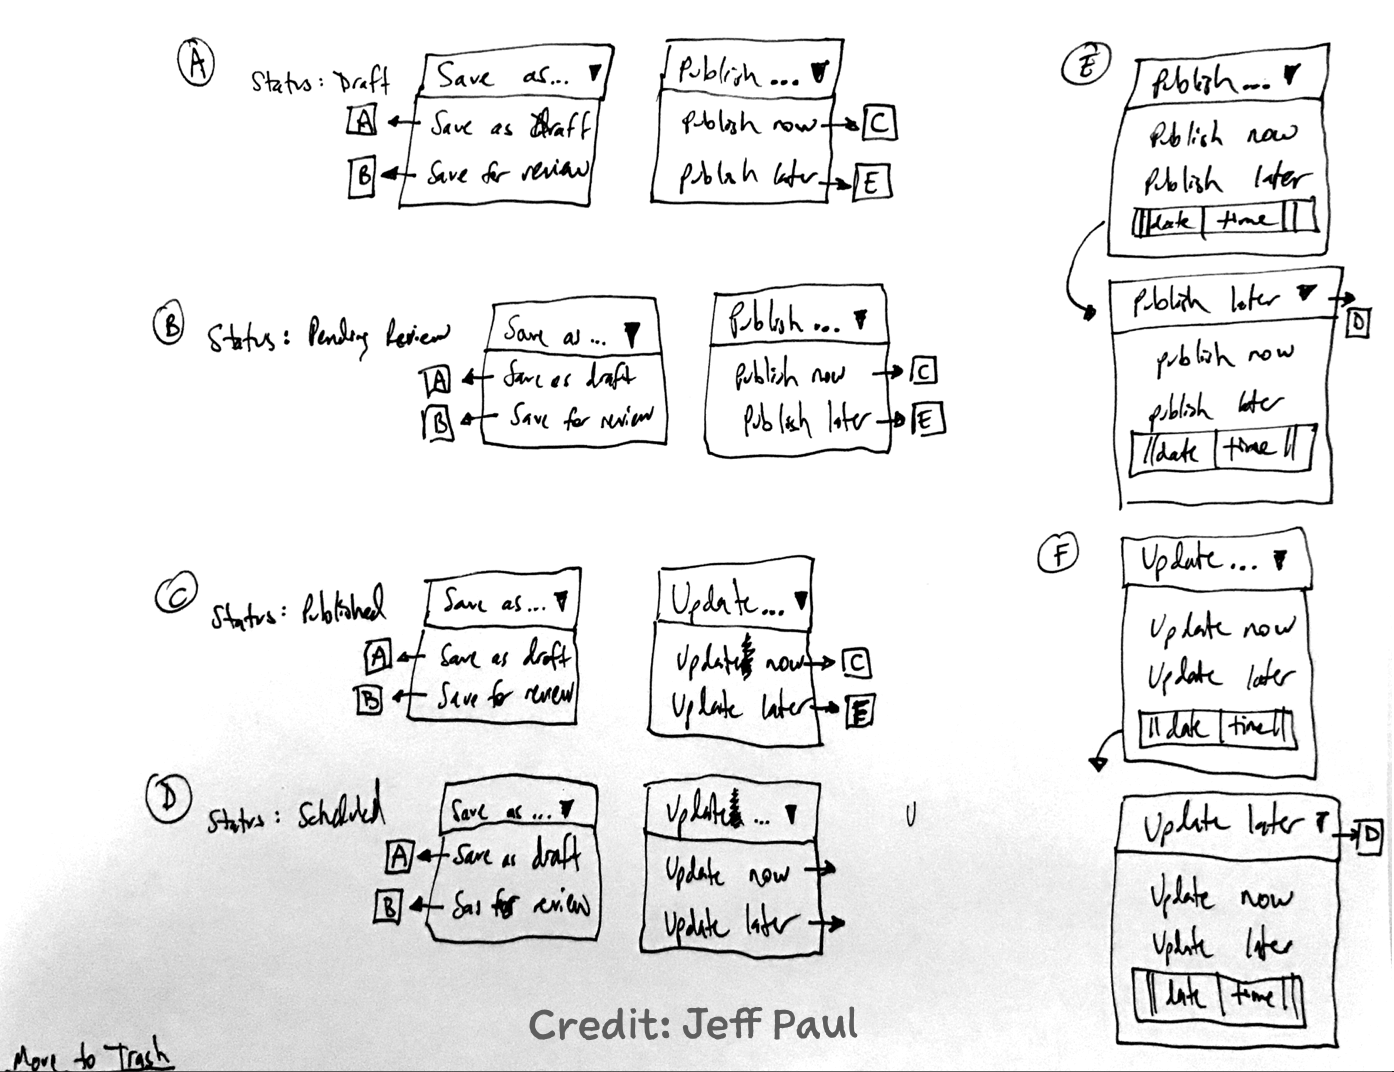 A
Status: Draft
Save as...
A
Save as Draft
B
Save for review
Publish...
Publish now
C
Publish later
E
B
Status: Pending Review
Save as...
A
Save as draft
B
Save for review
Publish...
Publish now
C
Publish later
E
C
Status: Published
Save as...
A
Save as draft
B
Save for review
Update...
Update now
C
Update later
E
D
Status: Scheduled
Save as...
A
Save as draft
B
Sas for review
Update...
Update now
Update later
U
E
Publish...
Publish now
Publish later
date time
Publish later
D
publish now
publish later
date time
F
Update...
Update now
Update later
date time
Update later
D
Update now
Update later
date time
Credit: Jeff Paul
Move to Trash